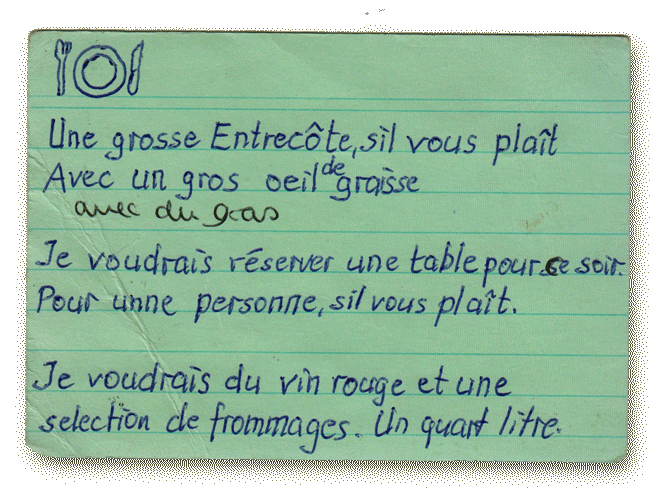 Une grosse Entrecôte, s'il vous plaît
Avec un gros oeil de graisse
avec du gras
Je voudrais réserver une table pour ce soir.
Pour unne personne, s'il vous plaît.
Je voudrais du vin rouge et une
selection de frommages. Un quart litre.